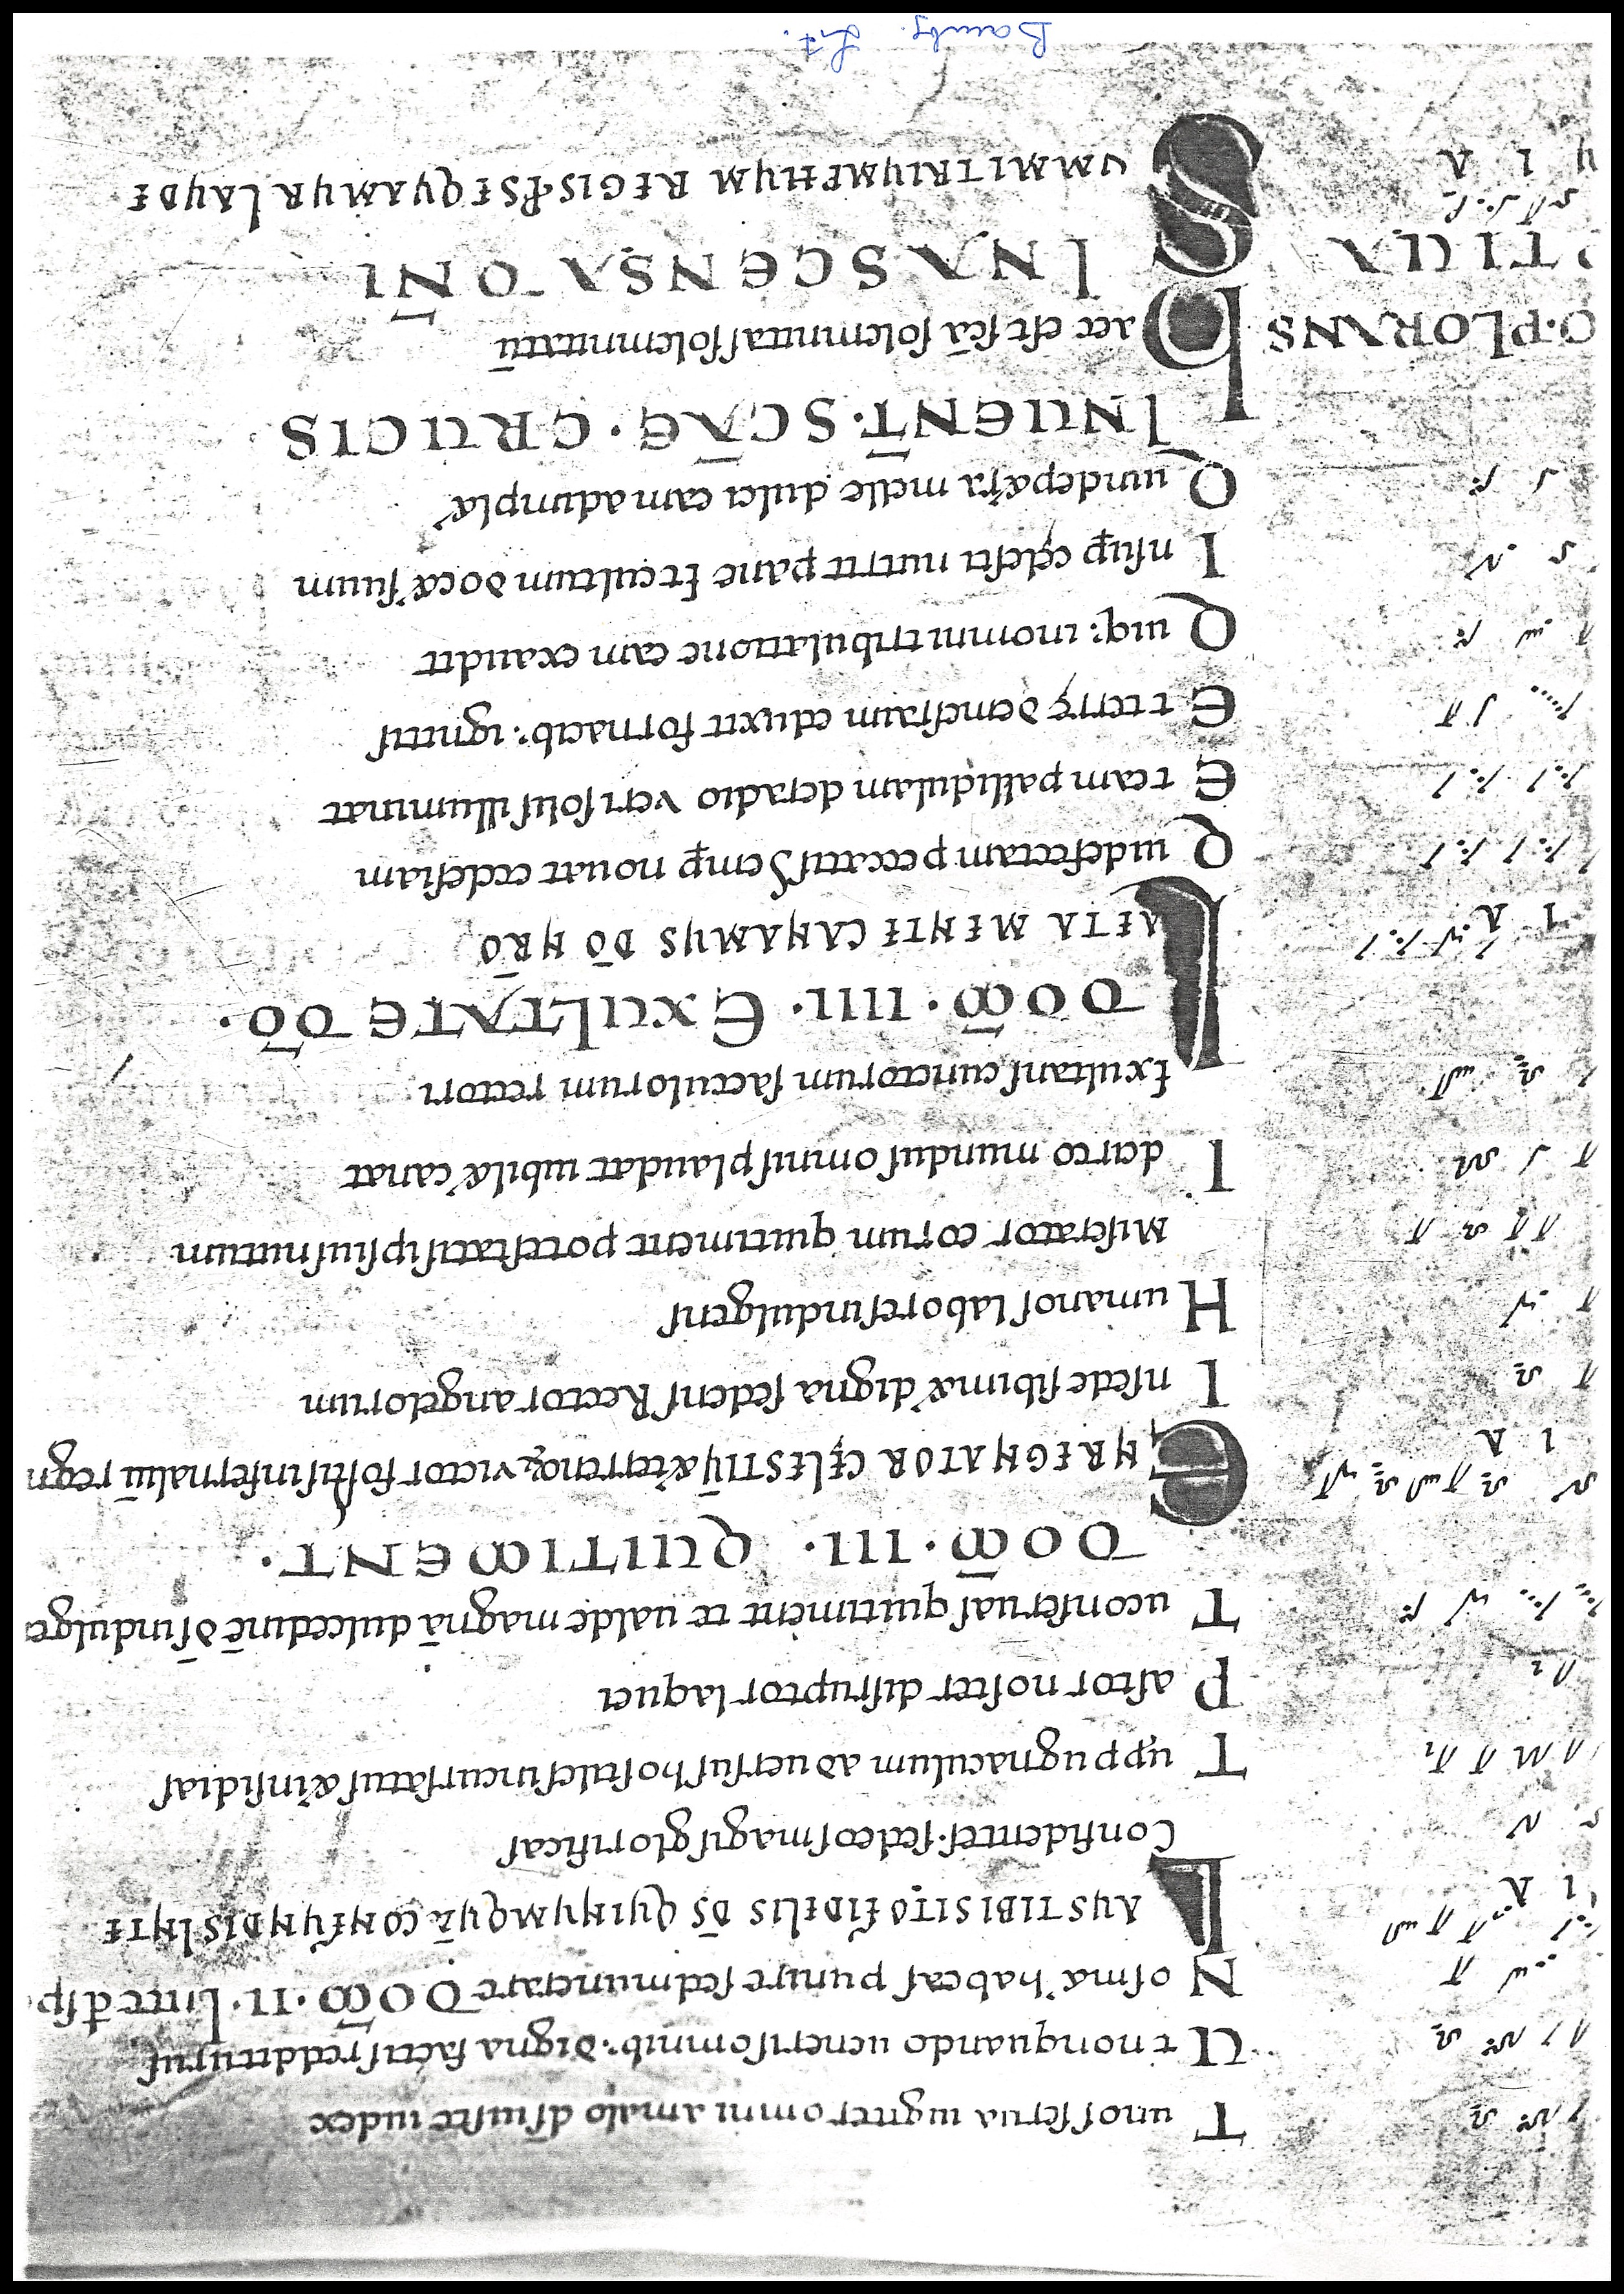 Tu nos serua iugiter omni amalo d̄s iuste iudex
Ut nonquando ueneris omnib: digna factis redditurus
Nos mᶏ habeas punire sed munerare DOM̄·II·
LAUS TIBI SIT O FIDELIS D̄S QUI NUMQUĀ CONFUNDIS IN TE
Confidentes. sed eos magis glorificas
Tu ꝓpugnaculum aduersus hostiles incursatus & insidias
Pastor noster disruptor laquei
Tu conseruas qui timent te ualde magnā dulcedinē d̄s indulge
DOM̄·III· QUI TIMENT·
EN REGNATOR CĘLESTIŪ & terrenoꝝ victor fortis infernaliū regn
In sede sibim& digna sedens Rector angelorum
Humanos labores indulgens
Miserator eorum qui timent potestatis ipsius nutum
Idcirco mundus omnis plaudat iubil& canat
Exultans cunctorum saeculorum rectori
DOM̄·IIII· EXULTATE DŌ·
LAETA MENTE CANAMUS DŌ NR̄O
Qui defectam peccatis Semꝑ nouat ecclesiam
Et eam pallidulam de radio veri solis illuminat
Et terrę demersam eduxit fornacib: ignitis
Quiq: in omni tribulatione eam exaudit
Insuꝑ cęlesti nutrit pane Et cultum doc& suum
Qui de p&ra melle dulci eam adimpl&
INUENT̄·SC̄AE·CRUCIS
O·PLORANS
haec est sc̄a solemnitas solemnitatū
IN ASCENSA DN̄I
SUMMI TRIUMPHUM REGIS ꝓSEQUAMUR LAUDE